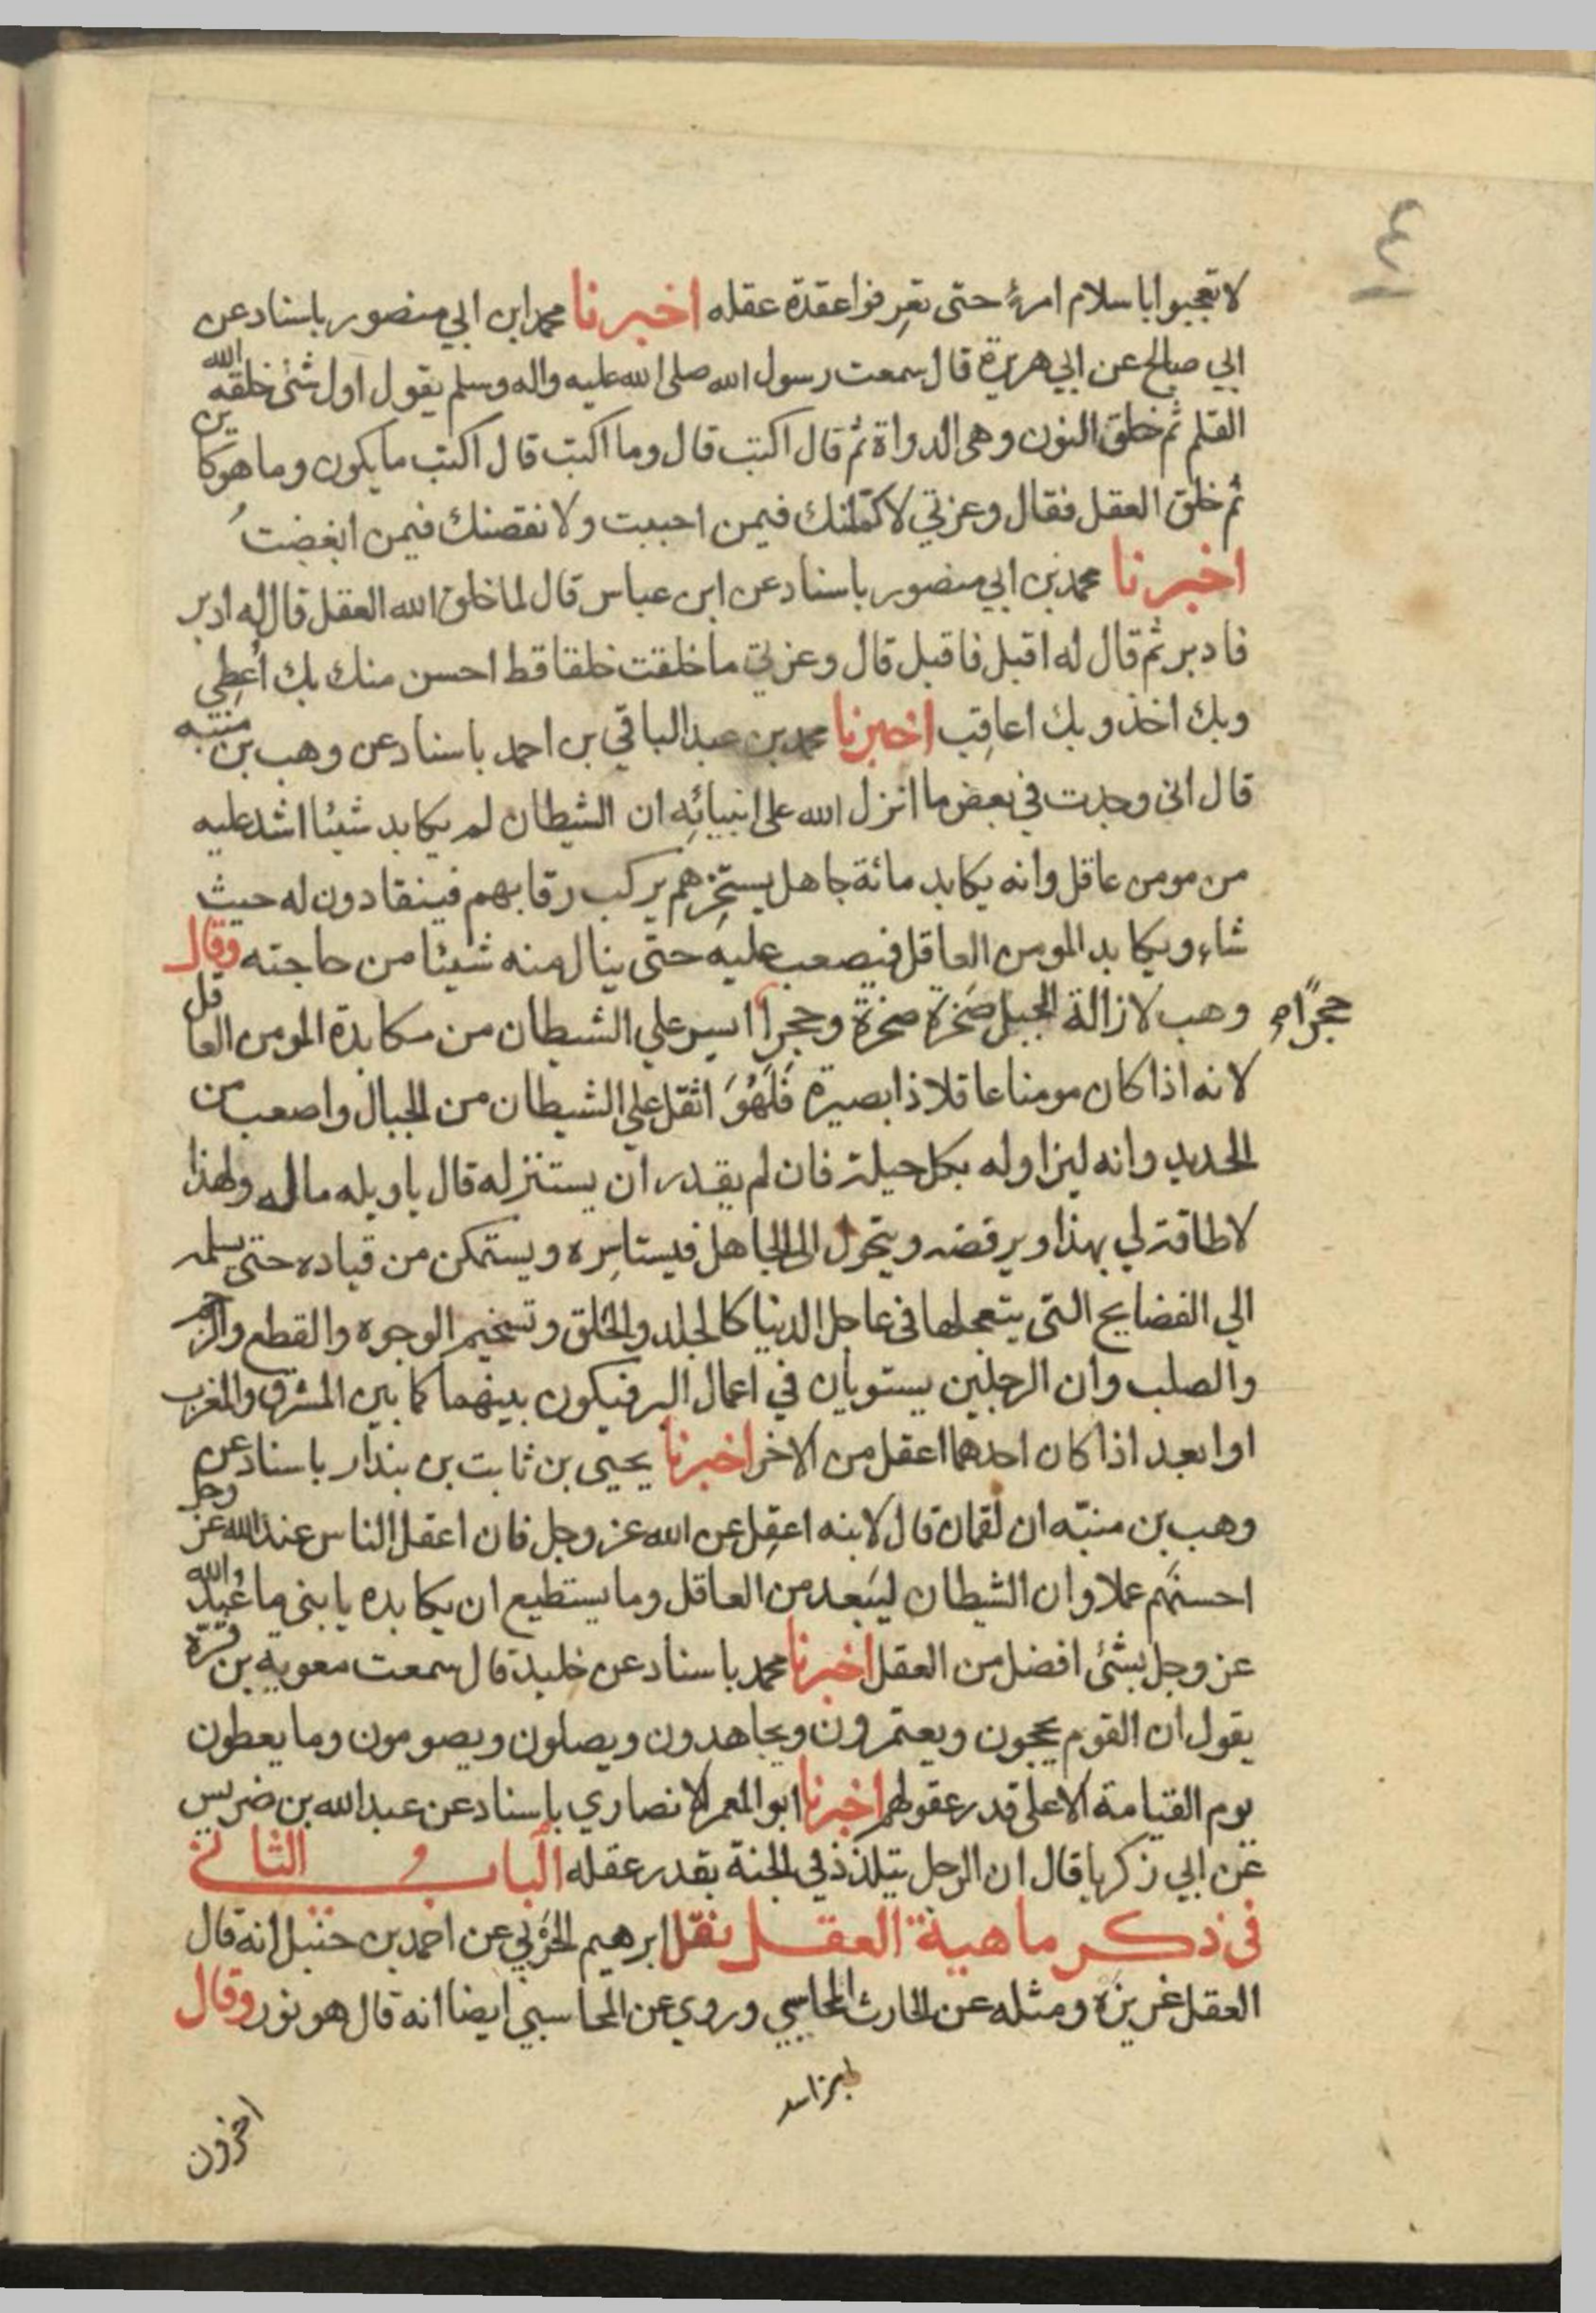 ٤
لا تعجبوا باسلام امرئ حتى تعرفوا عقدة عقله اخبرنا محمد ابن ابي منصور باسناد عن
ابي صالح عن ابي هريرة قال سمعت رسول الله صلى الله عليه واله وسلم يقول اول شئ خلقه الله
القلم ثم خلق النون وهى الدواة ثم قال اكتب قال وما اكتب قال اكتب ما يكون وما هو كاين
ثم خلق العقل فقال وعزتي لاكملنك فيمن احببت ولانقصنك فيمن ابغضتُ
اخبرنا محمد بن ابي منصور باسناد عن ابن عباس قال لما خلق الله العقل قال له ادبر
فادبر ثم قال له اقبل فاقبل قال وعزتي ما خلقت خلقا قط احسن منك بك اُعطِي
وبك اخذ وبك اعاقِب اخبرنا محمد بن عبد الباقي بن احمد باسناد عن وهب بن منبّه
قال انى وجدت في بعض ما انزل الله على انبيائِه ان الشيطان لم يكابد شيئا اشد عليه
من مومن عاقل وانه يكابد مائة جاهل يستجرهم يركب رقابهم فينقادون له حيث
شاء ويكابد المومن العاقل فيصعب عليه حتّى ينال منه شيئا من حاجته وقال
وهب لازالة الجبل صَخرة صخرة وحجراً ايسر علي الشيطان من مكابدة المومن العاقل
حجرًا م
لانه اذا كان مومنا عاقلا ذا بصيرة فَلَهُوَ اثقل علي الشيطان من الجبال واصعب من
الحديد وانه ليزاوله بكل حيلة فان لم يقدر ان يستنزله قال ياويله ماله ولهذا
لا طاقة لي بهذا ويرفضه ويتحول الى الجاهل فيستاسِره ويستمكن من قياده حتى يسلمه
الي الفضايح التى يتعجلها فى عاجل الدنيا كالجلد والحلق وتسخيم الوجوه والقطع والرجم
والصلب وان الرجلين يستويان في اعمال البر فيكون بينهما كما بين المشرق والمغرب
او ابعد اذا كان احدهما اعقل من الاخر اخبرنا يحيى بن ثابت بن بندار باسناد عن
وهب بن منبّه ان لقمان قال لابنه اعقِل عن الله عز وجل فان اعقل الناس عند الله عز وجل
احسنهم عملا وان الشيطان ليَبعد من العاقل وما يستطيع ان يكابده يا بنى ما عُبِد الله
عز وجل بشئ افضل من العقل اخبرنا محمد باسناد عن خليد قال سمعت معوية بن قرّة
يقول ان القوم يحجون ويعتمرون ويجاهدون ويصلون ويصومون وما يعطون
يوم القيامة الا على قدر عقولهم اخبرنا ابو المعمر الانصاري باسناد عن عبد الله بن ضريس
عن ابي زكريا قال ان الرجل يتلذذ في الجنة بقدر عقله الباب الثاني
فى ذكر ماهية العقل نقل ابرهيم الحَرْبي عن احمد بن حنبل انه قال
العقل غريزة ومثله عن الحارث المحاسبي وروي عن المحاسبي ايضا انه قال هو نور وقال
اخرون